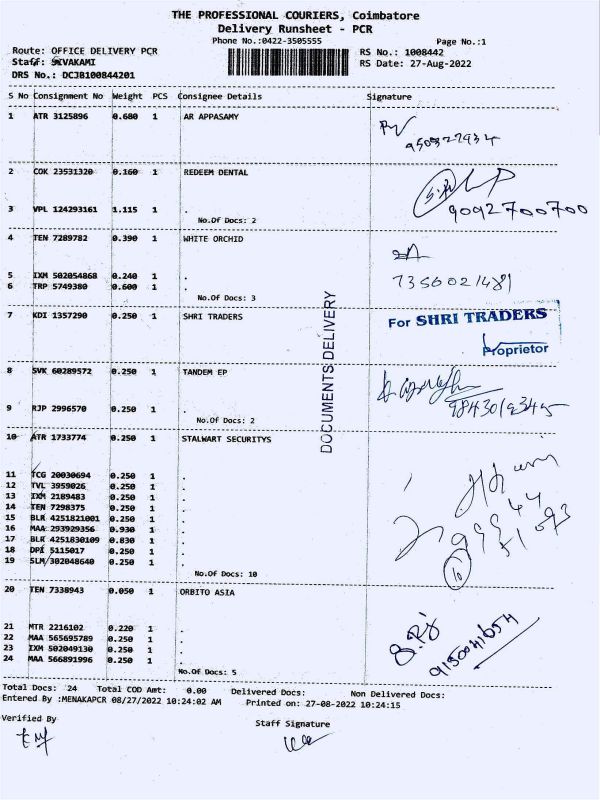 THE PROFESSIONAL COURIERS, Coimbatore
Delivery Runsheet - PCR
Phone No.:0422-3505555
Page No.:1
Route: OFFICE DELIVERY PCR
RS No.: 1008442
Staff: SIVAKAMI
RS Date: 27-Aug-2022
DRS No.: DCJB100844201
S No Consignment No Weight PCS Consignee Details Signature
1 ATR 3125896 0.680 1 AR APPASAMY
2 COK 23531320 0.160 1 REDEEM DENTAL
3 VPL 124293161 1.115 1 .
9092700700
No.Of Docs: 2
4 TEN 7289782 0.390 1 WHITE ORCHID
5 IXM 502054868 0.240 1 .
6 TRP 5749380 0.600 1 .
7356021481
No.Of Docs: 3
7 KDI 1357290 0.250 1 SHRI TRADERS
For SHRI TRADERS
Proprietor
DOCUMENTS DELIVERY
8 SVK 60289572 0.250 1 TANDEM EP
9 RJP 2996570 0.250 1 .
No.Of Docs: 2
10 ATR 1733774 0.250 1 STALWART SECURITYS
11 TCG 20030694 0.250 1 .
12 TVL 3959026 0.250 1 .
13 IXM 2189483 0.250 1 .
14 TEN 7298375 0.250 1 .
15 BLR 4251821001 0.250 1 .
16 MAA 293929356 0.930 1 .
17 BLR 4251830109 0.830 1 .
18 DPI 5115017 0.250 1 .
19 SLM 302048640 0.250 1 .
10
No.Of Docs: 10
20 TEN 7338943 0.050 1 ORBITO ASIA
21 MTR 2216102 0.220 1 .
22 MAA 565695789 0.250 1 .
23 IXM 502049130 0.250 1 .
24 MAA 566891996 0.250 1 .
9150041654
No.Of Docs: 5
Total Docs: 24 Total COD Amt: 0.00 Delivered Docs: Non Delivered Docs:
Entered By :MENAKAPCR 08/27/2022 10:24:02 AM Printed on: 27-08-2022 10:24:15
Verified By
Staff Signature